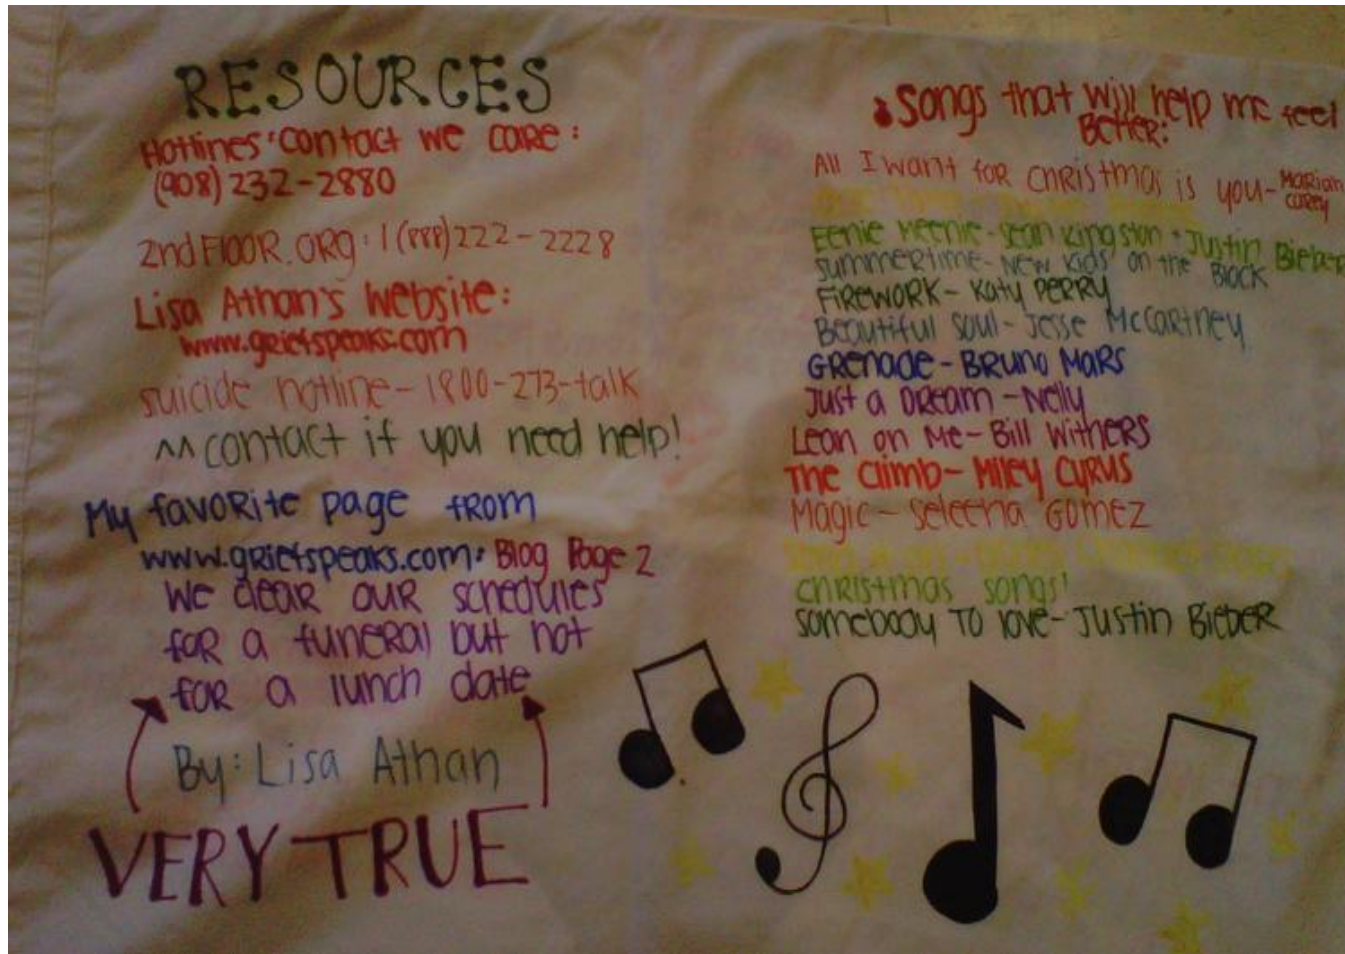 RESOURCES
Hotlines: Contact we care:
(908) 232-2880
2nd FlOOR.ORG: 1(888)222-2228
Lisa Athan's Website:
www.griefspeaks.com
suicide hotline-1800-273-talk
^^ contact if you need help!
My favorite page from
www.griefspeaks.com: Blog Page 2
We clear our schedules
for a funeral but not
for a lunch date
By: Lisa Athan
VERY TRUE
Songs that will help me feel
Better:
All I want for Christmas is you- Mariah
Carey
Eenie Meenie-Sean Kingston + Justin Bieber
Summertime-New Kids on the Block
Firework- Katy Perry
Beautiful Soul- Jesse McCartney
Grenade- Bruno Mars
Just a Dream-Nelly
Lean on Me-Bill Withers
The Climb- Miley Cyrus
Magic- Seleena Gomez
Christmas songs!
Somebody To love- Justin Bieber